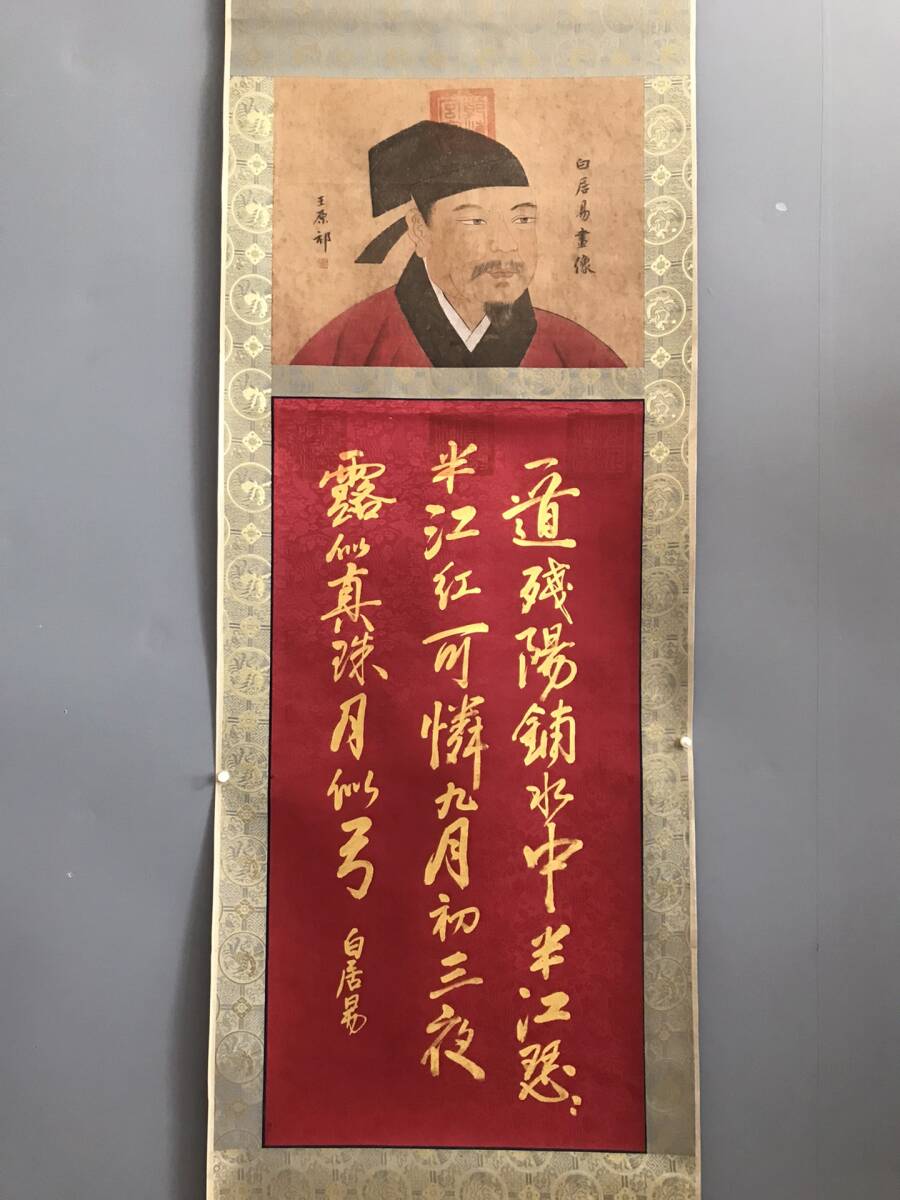 白居易畫像
王原祁
一道残陽鋪水中半江瑟:
半江红可憐九月初三夜
露似真珠月似弓
白居易